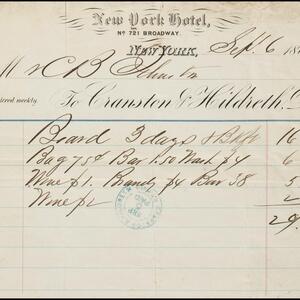 New York Hotel,
No 721 BROADWAY.
New York, Sept. 6 18
M C B
ered weekly. To Cranston & Hildreth,
Board 3 days & 16
Bag 75¢ Bar 1.50 Wash $4 6
Wine $1. Brandy $4 Bar 38 5
Wine $2 2
29